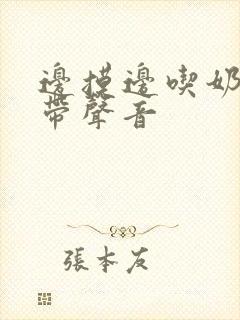 邊摸邊喫奶
帶聲音
張本友